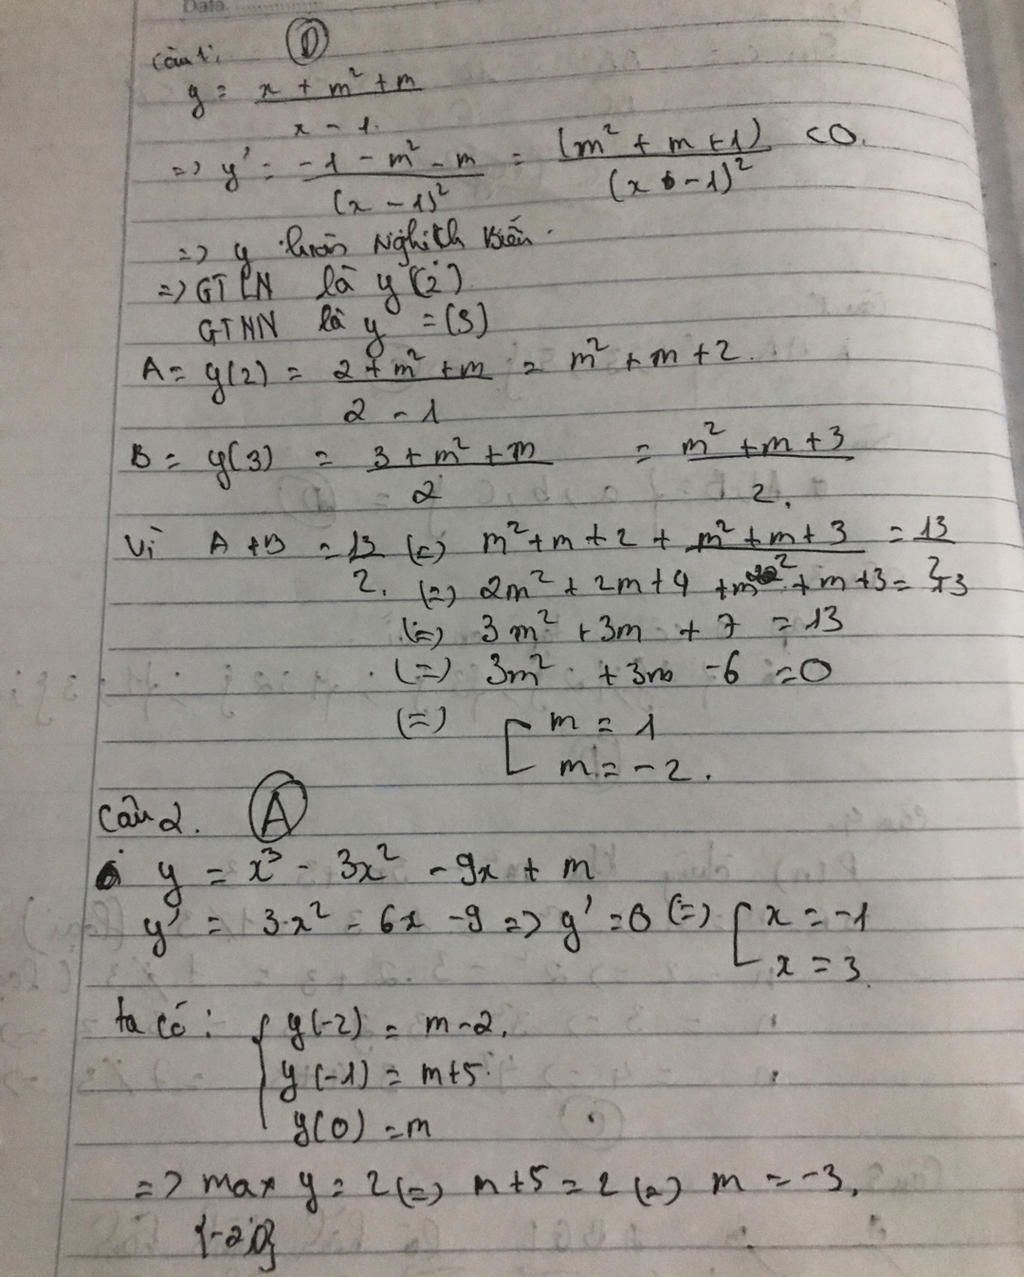 Date.
Câu 1: D
y = (x + m² + m) / (x - 1)
=> y' = (-1 - m² - m) / (x - 1)² = (m² + m + 1) / (x - 1)² < 0.
=> y luôn Nghịch Biến.
=> GTLN là y(2)
GTNN là y = (3)
A = y(2) = (2 + m² + m) / (2 - 1) = m² + m + 2.
B = y(3) = (3 + m² + m) / 2 = (m² + m + 3) / 2.
Vì A + B = 13/2. (=) m² + m + 2 + (m² + m + 3) / 2 = 13/2
(=) 2m² + 2m + 4 + m² + m + 3 = 13
(=) 3m² + 3m + 7 = 13
(=) 3m² + 3m - 6 = 0
(=) [ m = 1
m = -2.
Câu 2. A
y = x³ - 3x² - 9x + m
y' = 3x² - 6x - 9 => y' = 0 (=) [ x = -1
x = 3
ta có: { y(-2) = m - 2.
y(-1) = m + 5
y(0) = m
=> max y = 2 (=) m + 5 = 2 (=) m = -3.